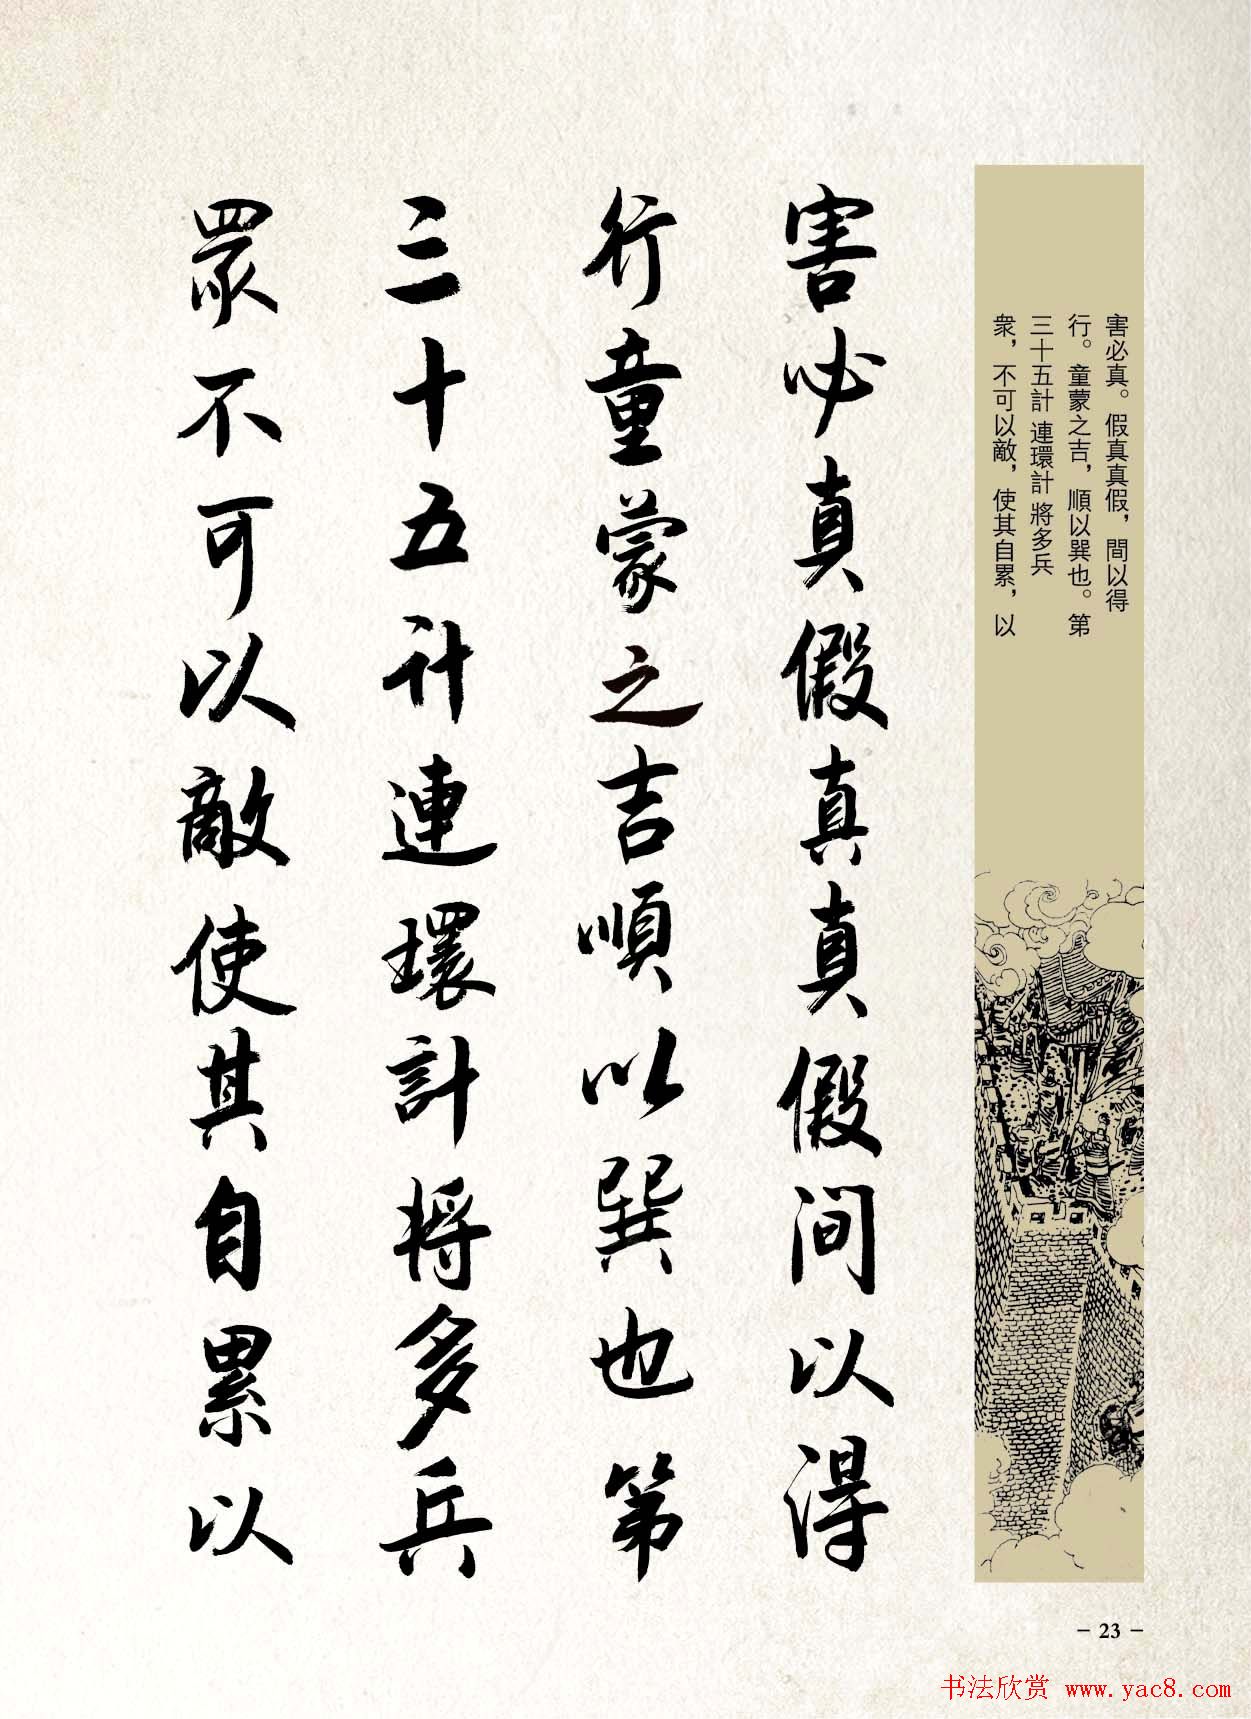 害必真假真真假间以得
行童蒙之吉順以巽也第
三十五计連環計将多兵
眾不可以敵使其自累以
害必真。假真真假，間以得
行。童蒙之吉，順以巽也。第
三十五計 連環計 將多兵
衆，不可以敵，使其自累，以
- 23 -
书法欣赏 www.yac8.com